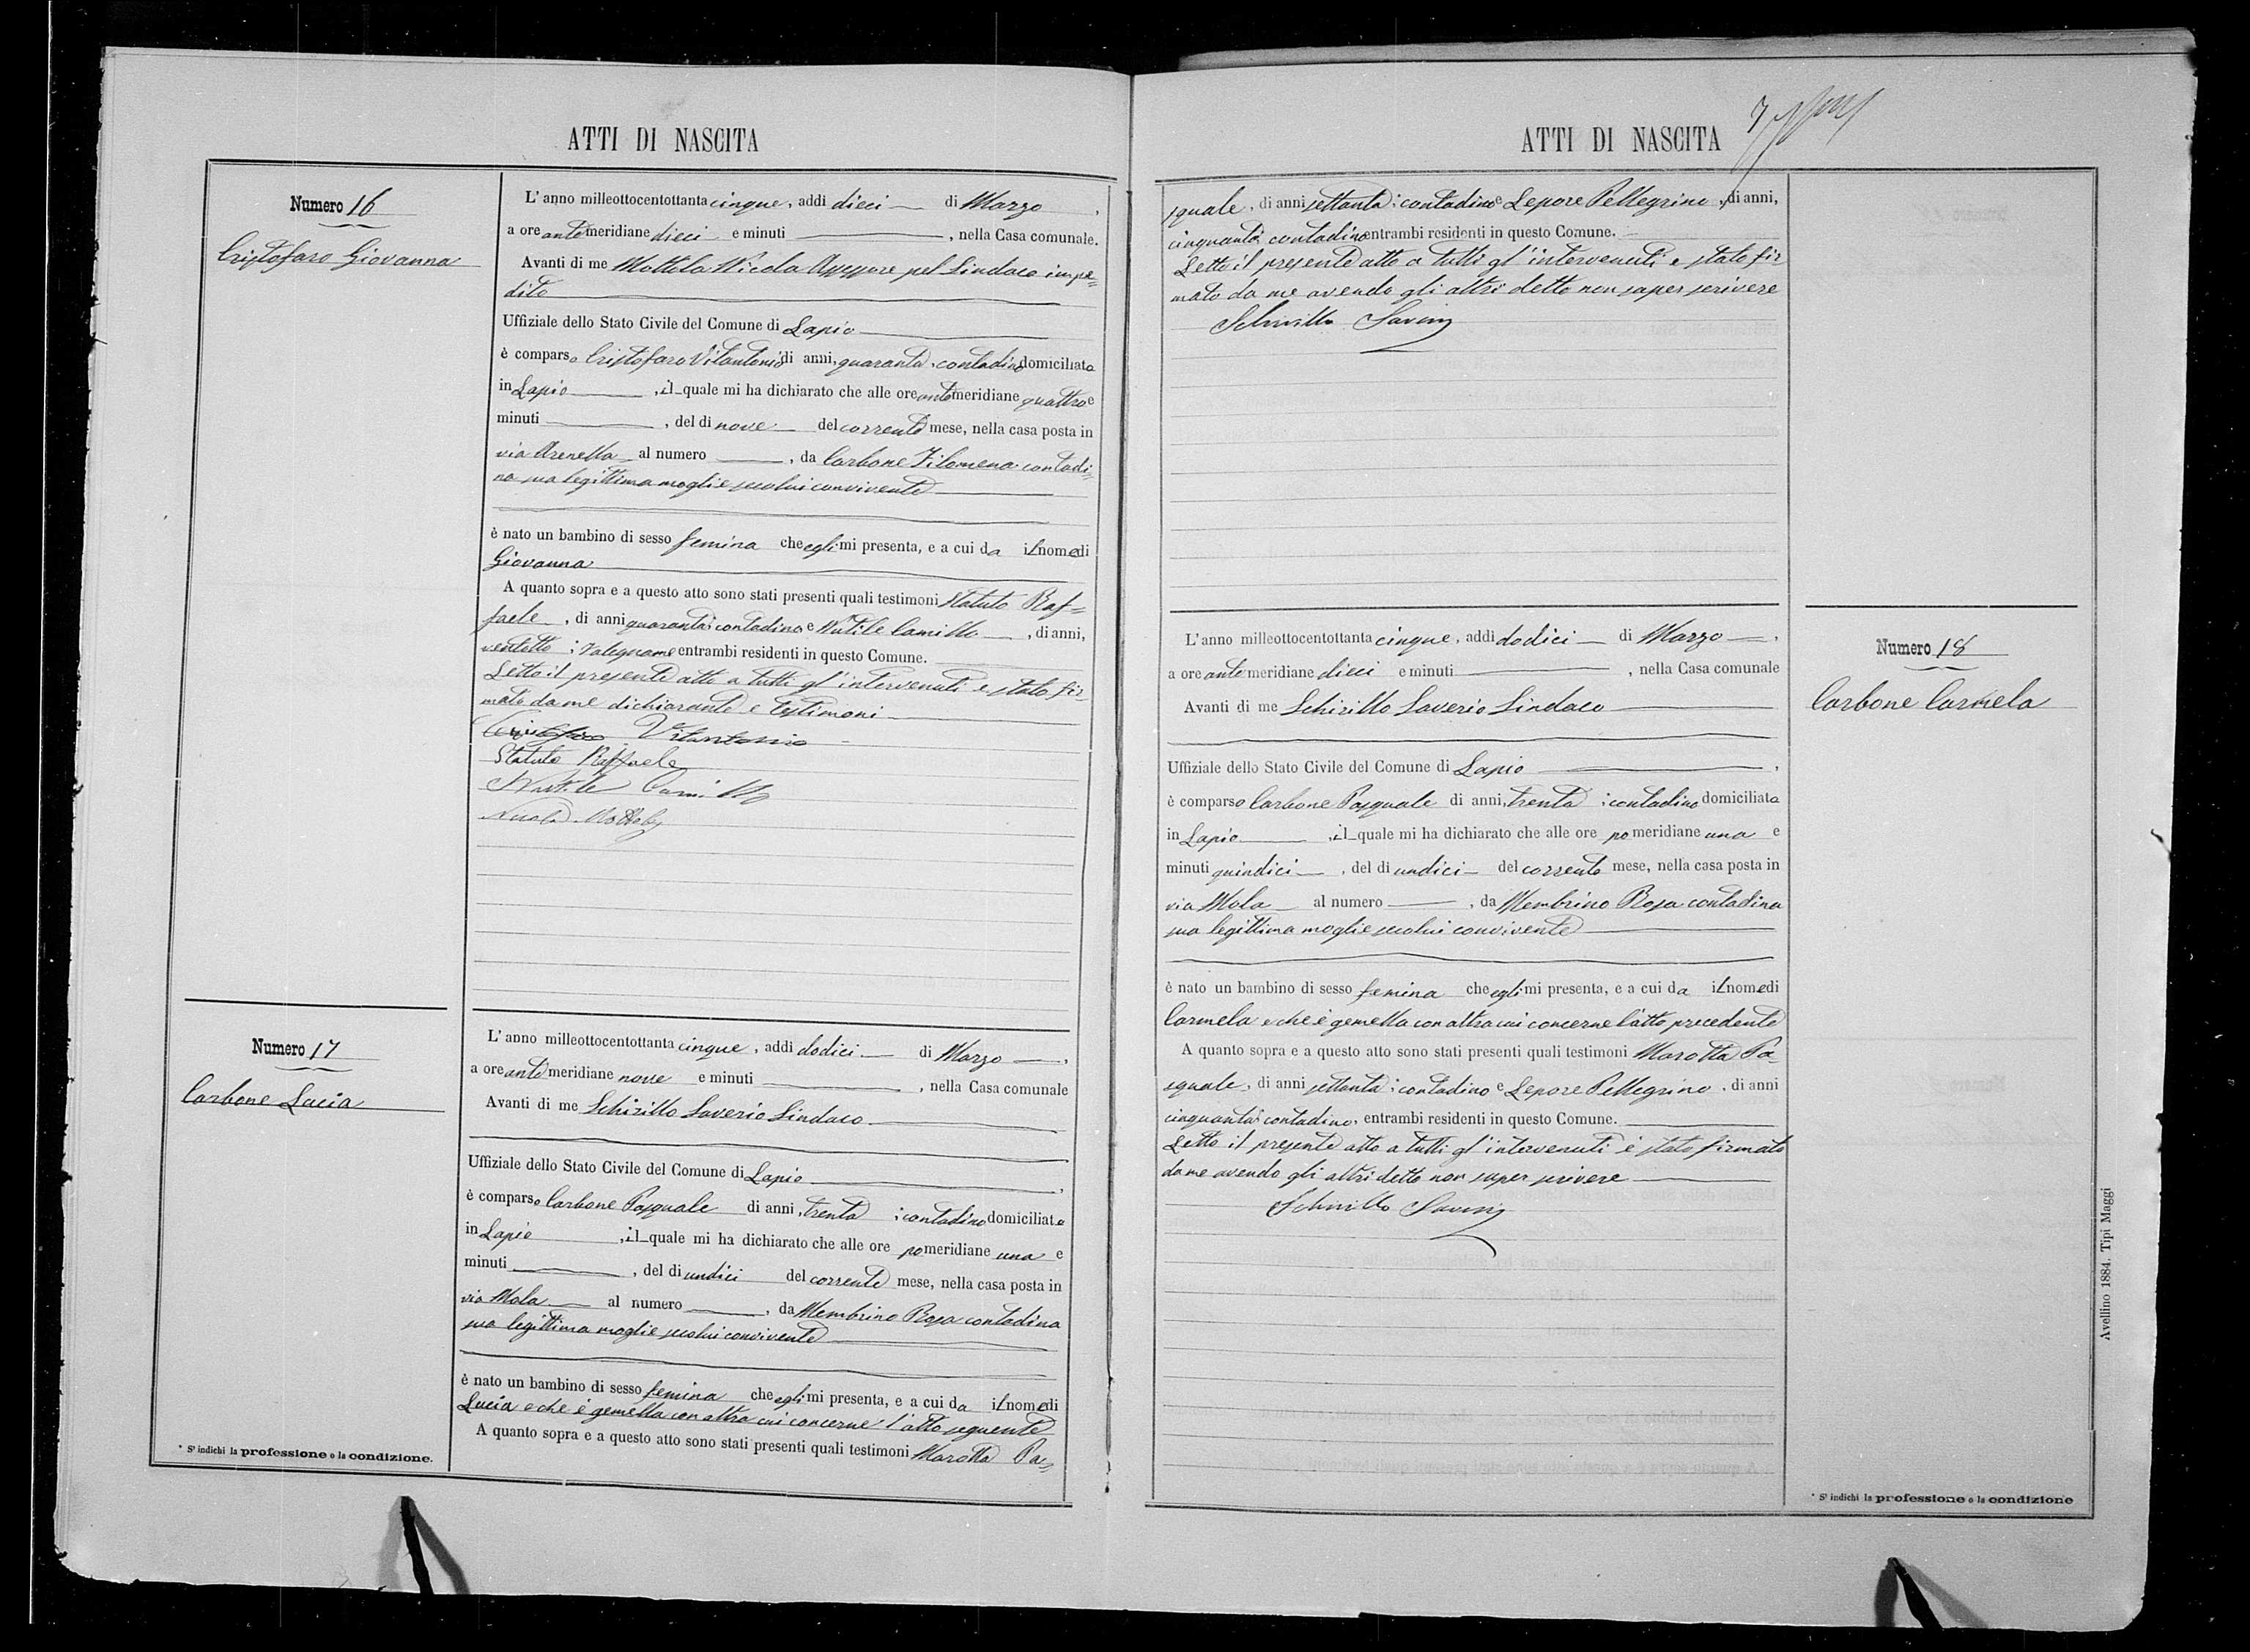 ATTI DI NASCITA
Numero 16
Cristofaro Giovanna
L'anno milleottocentottanta cinque, addì dieci di Marzo,
a ore antemeridiane dieci e minuti, nella Casa comunale.
Avanti di me Mottola Nicola Assessore pel Sindaco impe=
dito
Uffiziale dello Stato Civile del Comune di Lapio
è comparso Cristofaro Vitantonio di anni, quaranta, contadino domiciliato
in Lapio, il quale mi ha dichiarato che alle ore antemeridiane quattro e
minuti, del dì nove del corrente mese, nella casa posta in
via Arenella al numero, da Carbone Filomena contadi=
na sua legittima moglie secolui convivente
è nato un bambino di sesso femina che egli mi presenta, e a cui da il nome di
Giovanna
A quanto sopra e a questo atto sono stati presenti quali testimoni Statuto Raf=
faele, di anni quaranta; contadino e Nutile Camillo, di anni,
ventotto; falegname entrambi residenti in questo Comune.
Letto il presente atto a tutti gl'intervenuti e stato fir=
mato da me dichiarante e testimoni
Cristofaro Vitantonio
Statuto Raffaele
Nutile Camillo
Nicola Mottola
Numero 17
Carbone Lucia
L'anno milleottocentottanta cinque, addì dodici di Marzo,
a ore antemeridiane nove e minuti, nella Casa comunale
Avanti di me Schirillo Saverio Sindaco
Uffiziale dello Stato Civile del Comune di Lapio,
è comparso Carbone Pasquale di anni, trenta; contadino domiciliato
in Lapio, il quale mi ha dichiarato che alle ore pomeridiane una e
minuti, del dì undici del corrente mese, nella casa posta in
via Mola al numero, da Membrino Rosa contadina
sua legittima moglie secolui convivente
è nato un bambino di sesso femina che egli mi presenta, e a cui da il nome di
Lucia e che è gemella con altra cui concerne l'atto seguente
A quanto sopra e a questo atto sono stati presenti quali testimoni Marotta Pa=
* Si indichi la professione o la condizione.
ATTI DI NASCITA
7
squale, di anni settanta; contadino e Lepore Pellegrino, di anni,
cinquanta; contadino entrambi residenti in questo Comune.
Letto il presente atto a tutti gl'intervenuti e stato fir=
mato da me avendo gli altri detto non saper scrivere
Schirillo Saverio
Numero 18
Carbone Carmela
L'anno milleottocentottanta cinque, addì dodici di Marzo,
a ore antemeridiane dieci e minuti, nella Casa comunale
Avanti di me Schirillo Saverio Sindaco
Uffiziale dello Stato Civile del Comune di Lapio,
è comparso Carbone Pasquale di anni, trenta; contadino domiciliato
in Lapio, il quale mi ha dichiarato che alle ore pomeridiane una e
minuti quindici, del dì undici del corrente mese, nella casa posta in
via Mola al numero, da Membrino Rosa contadina
sua legittima moglie secolui convivente
è nato un bambino di sesso femina che egli mi presenta, e a cui da il nome di
Carmela e che è gemella con altra cui concerne l'atto precedente
A quanto sopra e a questo atto sono stati presenti quali testimoni Marotta Pa=
squale, di anni settanta; contadino e Lepore Pellegrino, di anni
cinquanta; contadino, entrambi residenti in questo Comune.
Letto il presente atto a tutti gl'intervenuti è stato firmato
da me avendo gli altri detto non saper scrivere
Schirillo Saverio
* Si indichi la professione o la condizione
Avellino 1884. Tipi Maggi